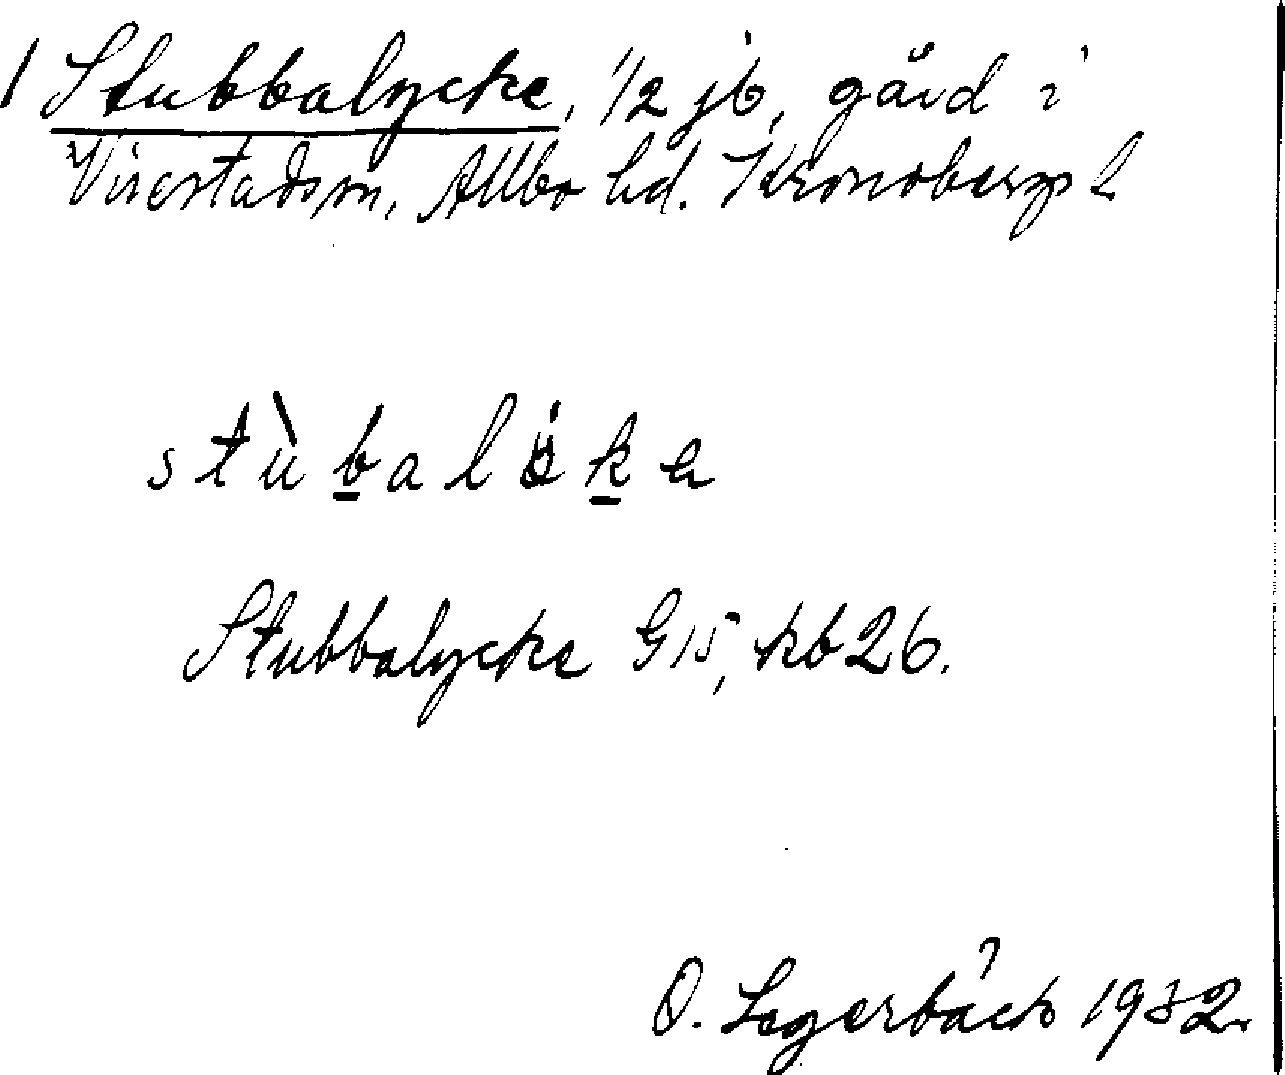 1 Stubbalycke, 1/2 jb, gård i
Virestad sn, Allbo hd. Kronobergs l
stùbalöka
Stubbalycke G15, kb 26.
O. Lagerbäck 1932.